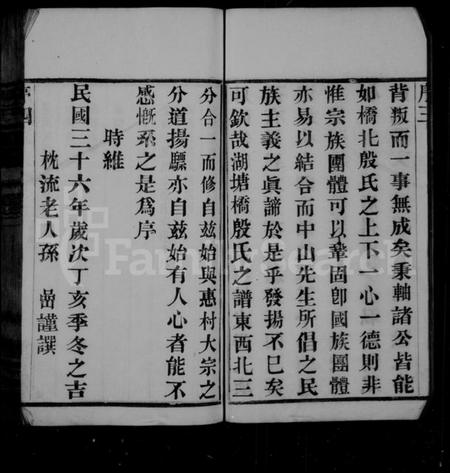 序三
背叛而一事無成矣秉軸諸公皆能
如橋北殷氏之上下一心一德則非
惟宗族團體可以鞏固卽國族團體
亦易以結合而中山先生所倡之民
族主義之眞諦於是乎發揚不已矣
可欽哉湖塘橋殷氏之譜東西北三
分合一而修自玆始與惠村大宗之
分道揚驃亦自玆始有人心者能不
感慨系之是爲序
時維
民國三十六年歲次丁亥季冬之吉
枕流老人孫嵒謹譔
序四
FamilySearch